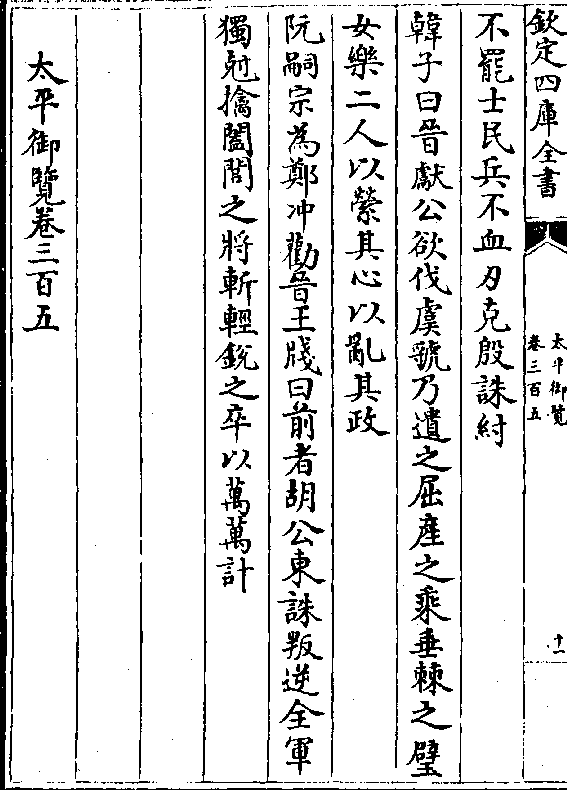 欽定四庫全書
太平御覽
卷三百五
十一
不罷士民兵不血刃克殷誅紂
韓子曰晉獻公欲伐虞虢乃遺之屈產之乘垂棘之璧
女樂二人以縈其心以亂其政
阮嗣宗為鄭冲勸晉王牋曰前者胡公東誅叛逆全軍
獨尅擒闔閭之將斬輕銳之卒以萬萬計
太平御覽卷三百五